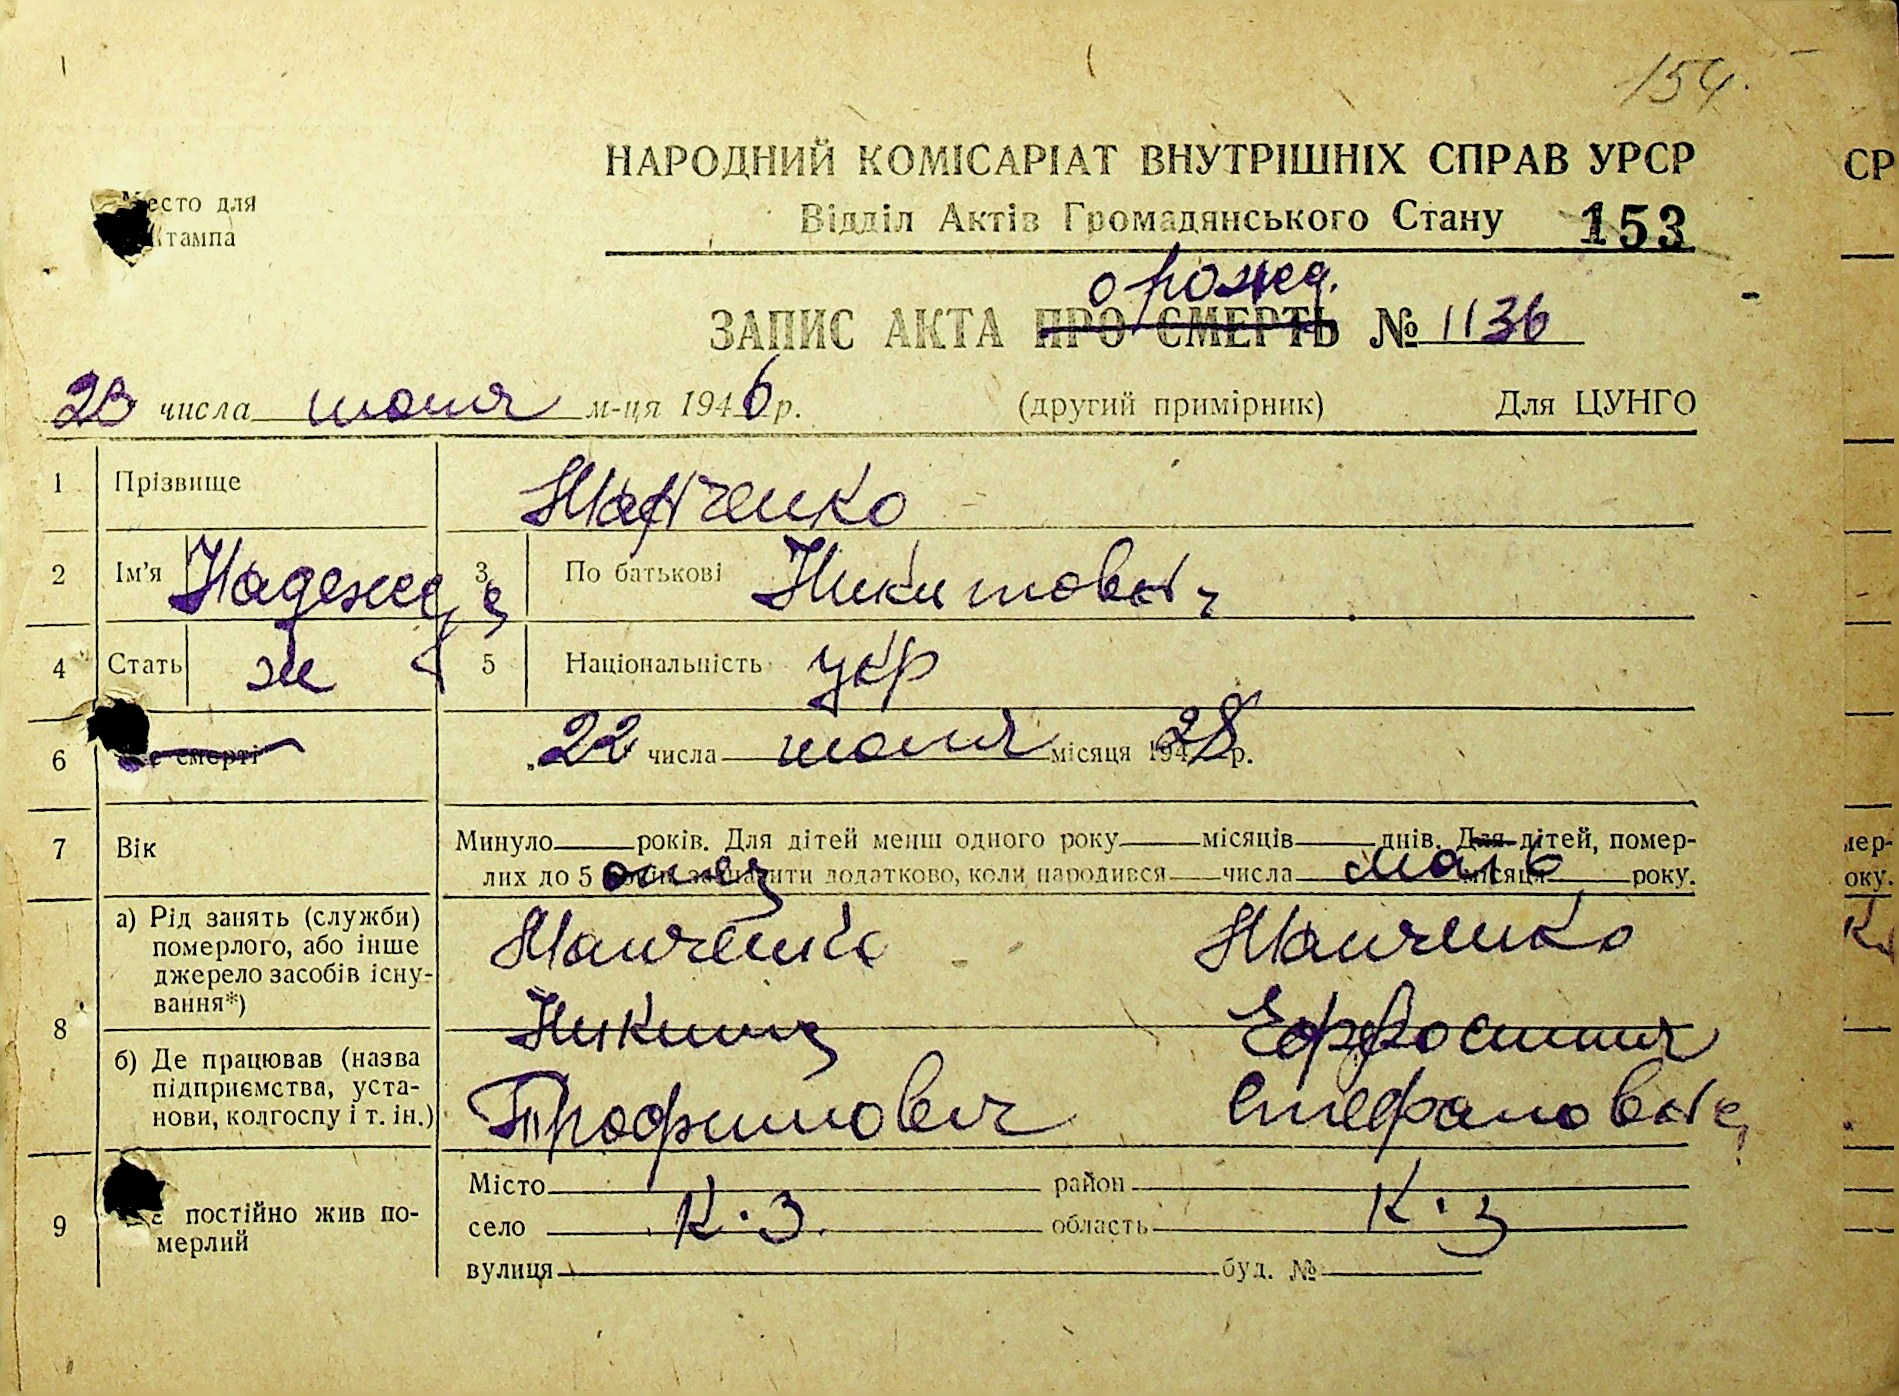 154.
НАРОДНИЙ КОМІСАРІАТ ВНУТРІШНІХ СПРАВ УРСР
СР
Место для
штампа
Відділ Актів Громадянського Стану 153
о рожд.
ЗАПИС АКТА ПРО СМЕРТЬ № 1136
23 числа июня м-ця 1946 р. (другий примірник) Для ЦУНГО
1 Прізвище
2 Ім'я Надежда 3 По батькові Никитовна
4 Стать ж 5 Національність укр
6 смерті 22 числа июня місяця 1928 р.
7 Вік Минуло років. Для дітей менш одного року місяців днів. Для дітей, помер-
лих до 5 років зазначити додатково, коли народився числа місяця року.
отец мать
8 а) Рід занять (служби)
померлого, або інше
джерело засобів існу-
вання*)
Никита Ефросиния
б) Де працював (назва
підприємства, уста-
нови, колгоспу і т. ін.)
Трофимович Стефановна
9 постійно жив по-
мерлий
Місто район
село К-З. область К-З
вулиця буд. №
мер-
оку.